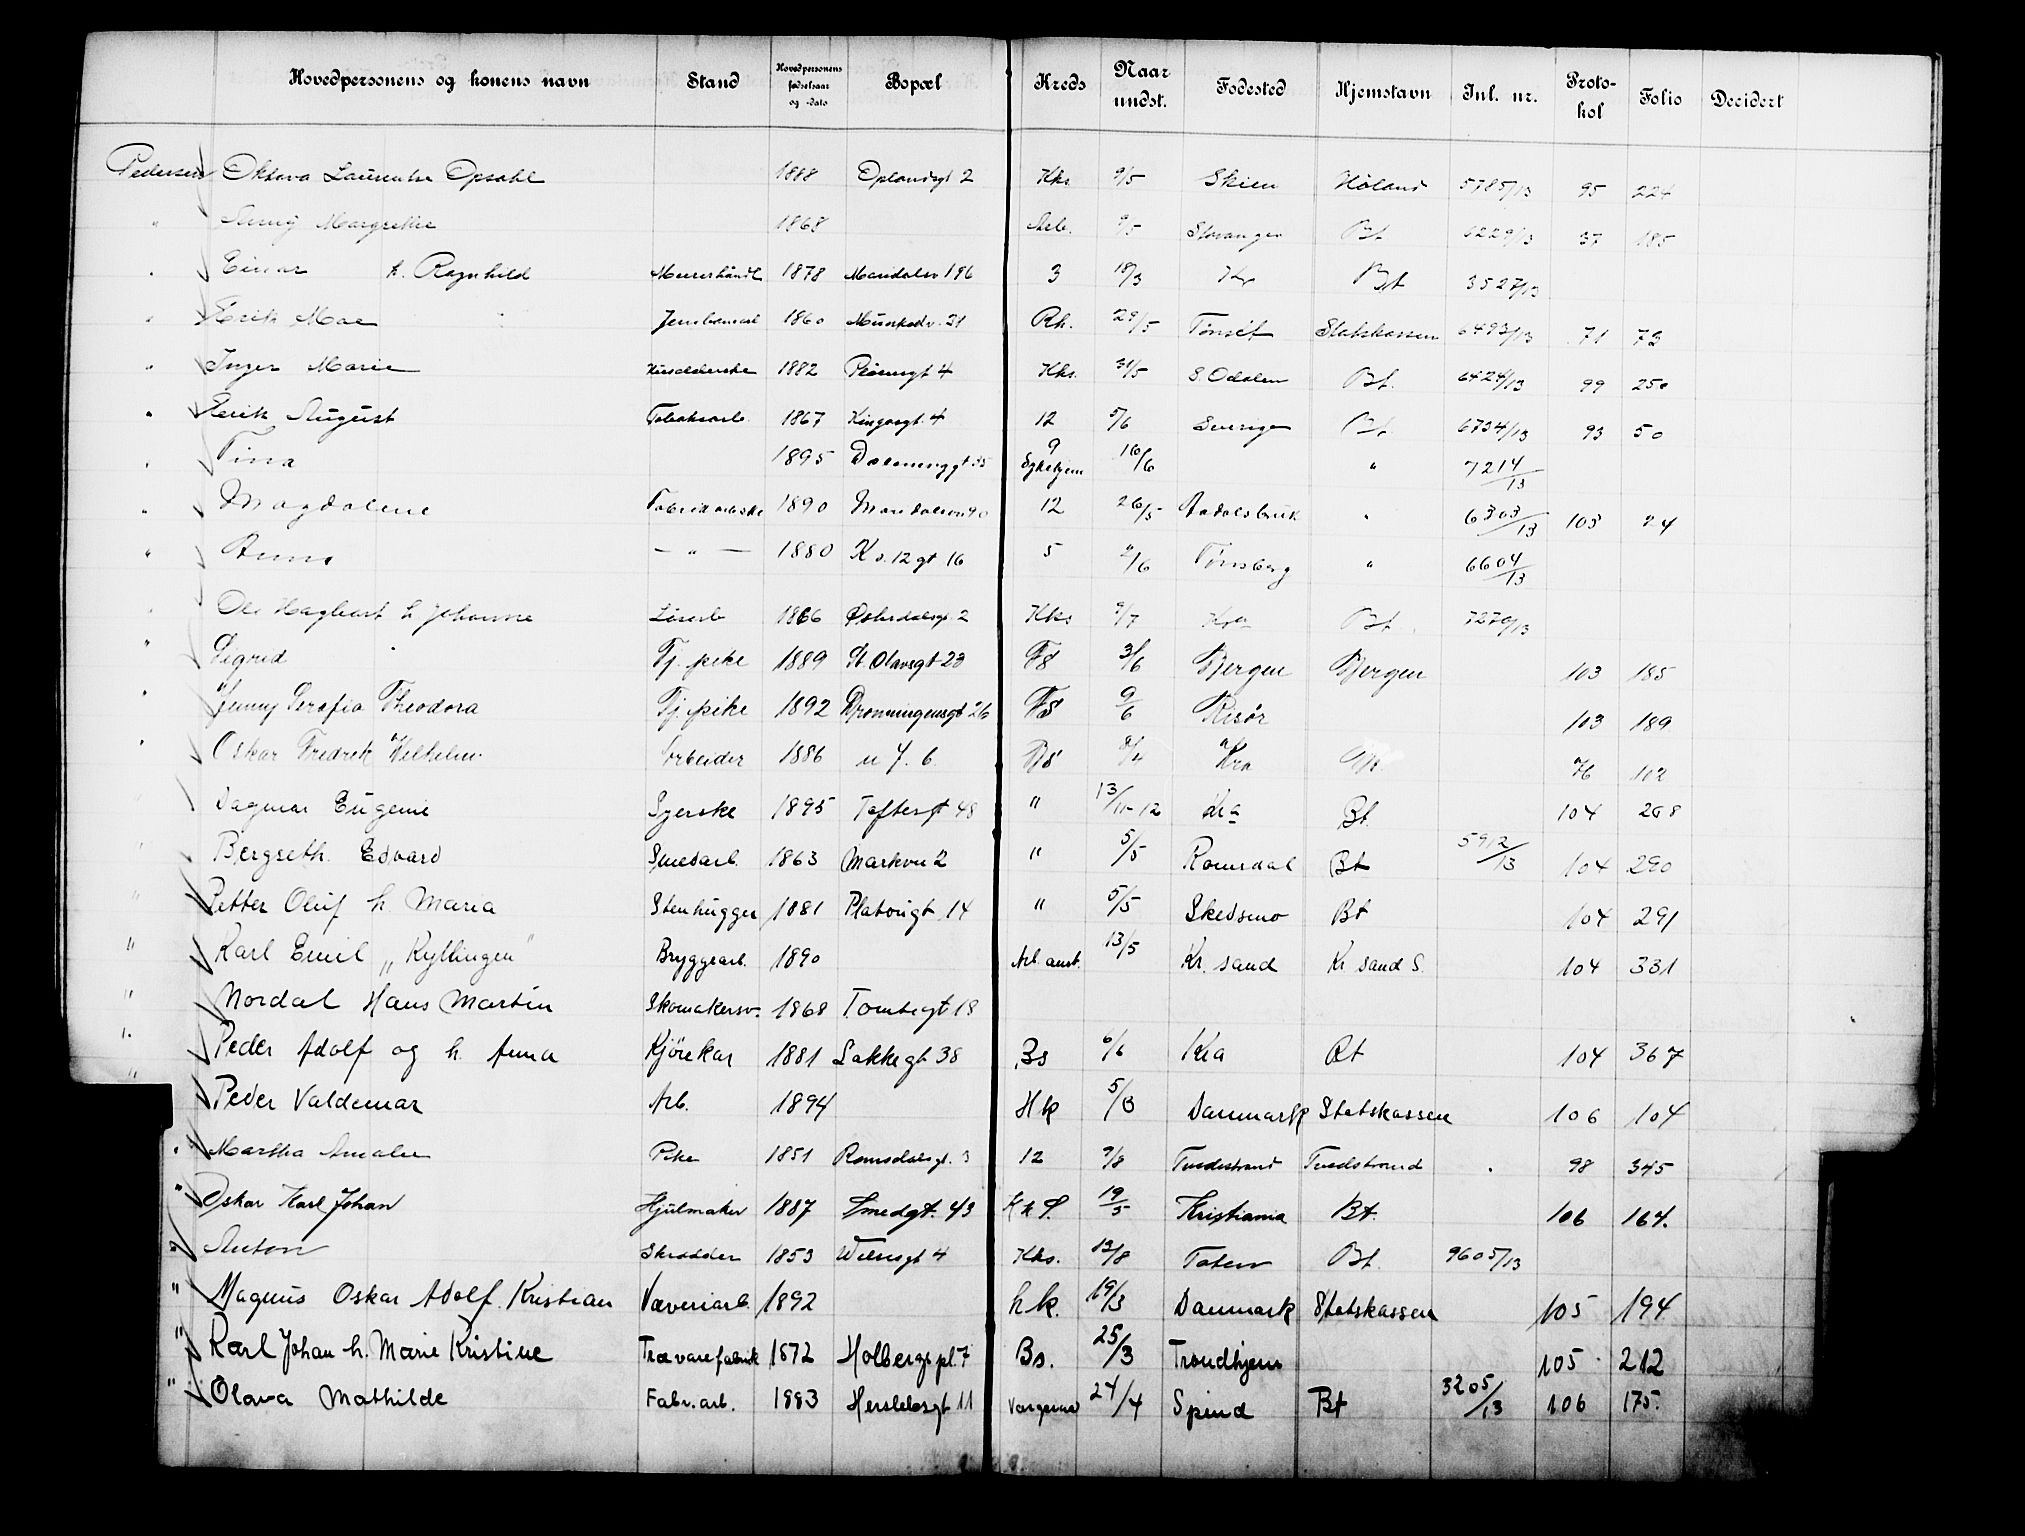 Hovedpersonens og konens navn Stand Hovedpersonens fødselsaar og -dato Bopæl Kreds Naar undst. Fødested Hjemstavn Inl. nr. Protokol Folio Decidert
Pedersen Oktava Laurentse Opsahl 1888 Oplandsgt 2 Kks 9/5 Skien Høland 5785/13 95 224
" Margrethe 1868 Arb. 9/5 Stavanger Bt 6229/13 37 185
" Einar h. Ragnhild Murerhåndl 1878 Maridalsv 196 3 18/3 Kr Bt 3527/13
" Erik Moe Jernbanearb 1860 Munkedv. 21 Rk. 29/5 Tønset Statskassen 6493/13 71 73
" Inger Marie 1882 4 Kks. 31/5 S. Odalen Bt. 6424/13 99 250
" Erik August Tobaksarb. 1867 Kingosgt. 4 12 5/6 Sverige Bt. 6734/13 93 50
" Tina 1895 35 9 Sykehjem 16/6 " 7214/13
" Magdalene Fabrikarbske 1890 Maridalsvn 90 12 26/5 Aadalsbruk " 6303/13 103 24
" Anna — " — 1880 Ks. 12 gt 16 5 2/6 Tønsberg " 6604/13
" Ole Hagbart h Johanne Løsarb 1866 Østerdalsgt 2 Kks 9/7 Kra Bt. 7270/13
" Sigrid Tj. pike 1889 St. Olavsgt 23 Fs 3/6 Bergen Bergen 103 185
" Jenny Serafia Theodora Tj. pike 1892 Dronningensgt 26 Fs 9/6 Risør 103 189
" Oskar Fredrik Vilhelm Arbeider 1886 u. f. b. Bs 8/4 Kra Bt. 76 102
" Dagmar Eugenie Syerske 1895 Toftesgt 48 " 13/11-12 Kra Bt. 104 268
" Bergseth. Edvard Smedarb. 1863 Markvn 2 " 5/5 Romsdal Bt 5912/13 104 290
" Petter Oluf h Maria Stenhugger 1881 Platougt 14 " 5/5 Skedsmo Bt 104 291
" Karl Emil „Kyllingen" Bryggearb. 1890 Arb. anst. 13/5 Kr. sand Kr sand S. 104 331
" Nordal Hans Martin Skomakersv. 1868 Tomtegt 18
" Peder Adolf og h. Anna Kjörekar 1881 Lakkegt 38 Bs 6/6 Kra Bt 104 367
" Peder Valdemar Arb. 1894 Hk 5/8 Danmark Statskassen 106 104
" Martha Amalie Pike 1851 Romsdalsgt. 3 12 9/8 Tvedestrand Tvedestrand 98 345
" Oskar Karl Johan Hjulmaker 1887 Smedgt. 43 Kk S. 19/5 Kristiania Bt. 106 164.
" Anton Skrædder 1853 Willesgt 4 Kks. 13/8 Toten Bt. 9605/13
" Magnus Oskar Adolf. Kristian Væveriarb. 1892 hk. 19/3 Danmark Statskassen 105 194
" Karl Johan h. Marie Kristine Trævarefabrik 1872 Holbergs pl 7 Bs. 25/3 Trondhjem 105 212
" Olava Mathilde Fabr. arb. 1883 Herslebsgt 11 24/4 Spind Bt 3205/13 106 175.